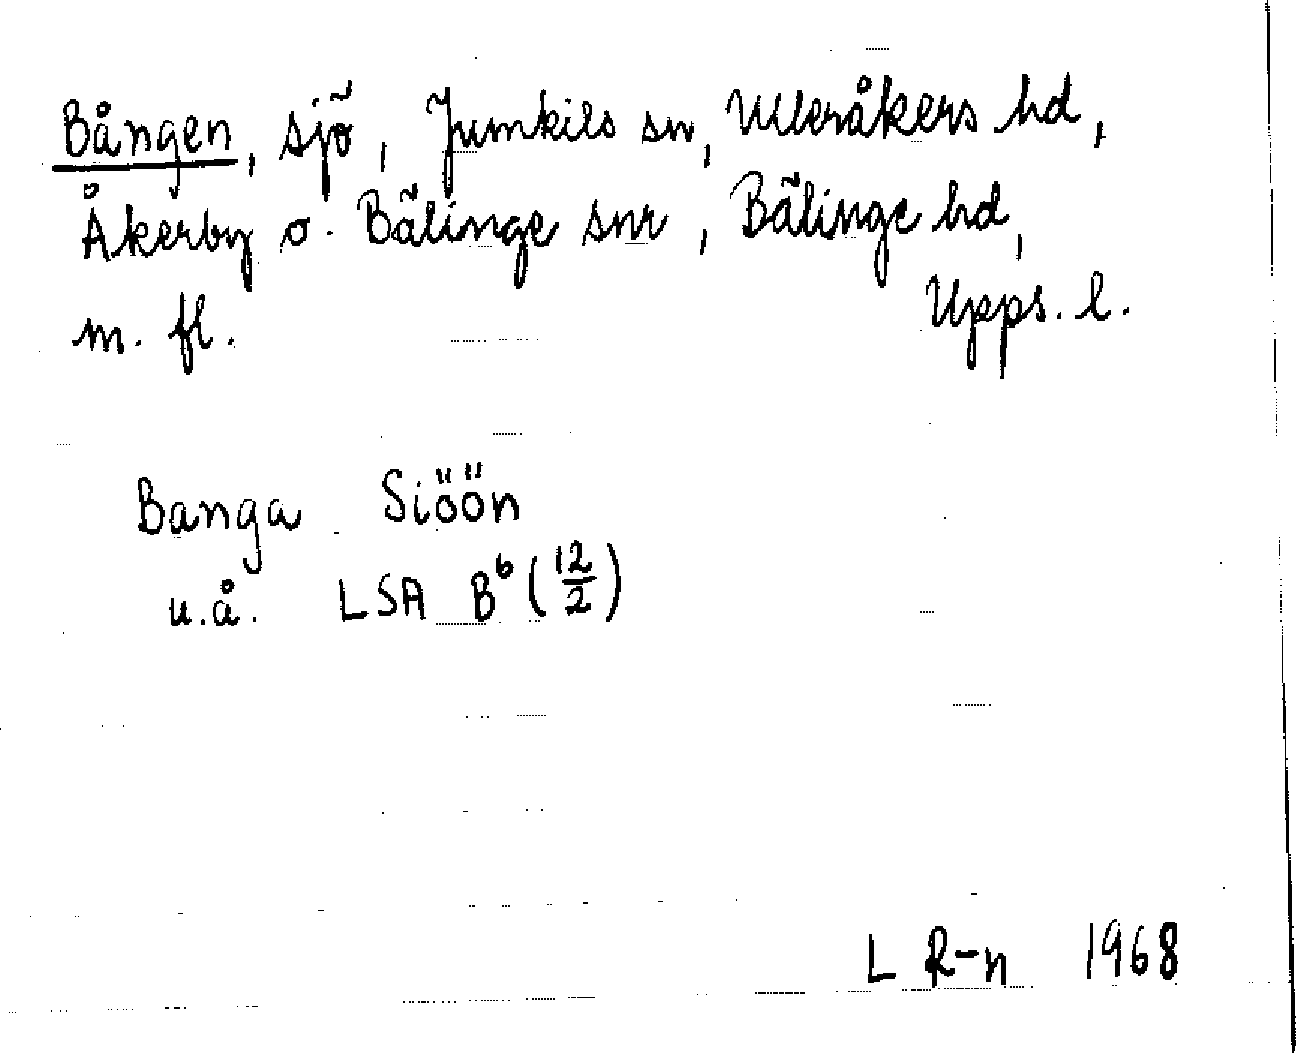 Bången, sjö, Jumkils sn, Ulleråkers hd,
Åkerby o. Bälinge snr, Bälinge hd,
m. fl. Upps. l.
Banga Siöön
u.å. LSA B⁶ (12/2)
L R-n 1968